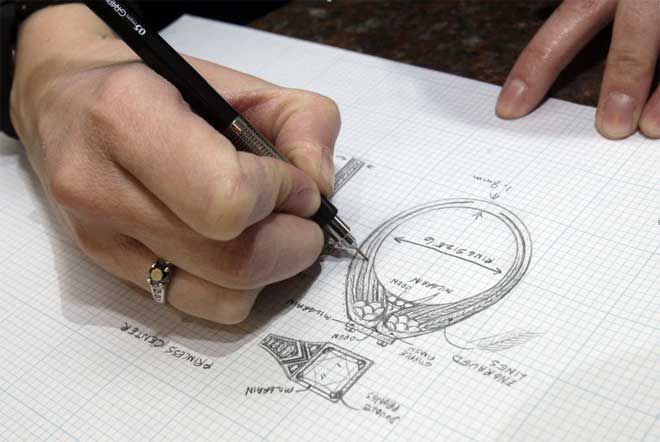 0.5mm GRAPH
1.8mm
RING SIZE 6
MILGRAIN
OPEN
MILGRAIN
OPEN
FINISH
ENGRAVED
LINES
PRINCESS CENTER
MILGRAIN
DOUBLE
PRONGS